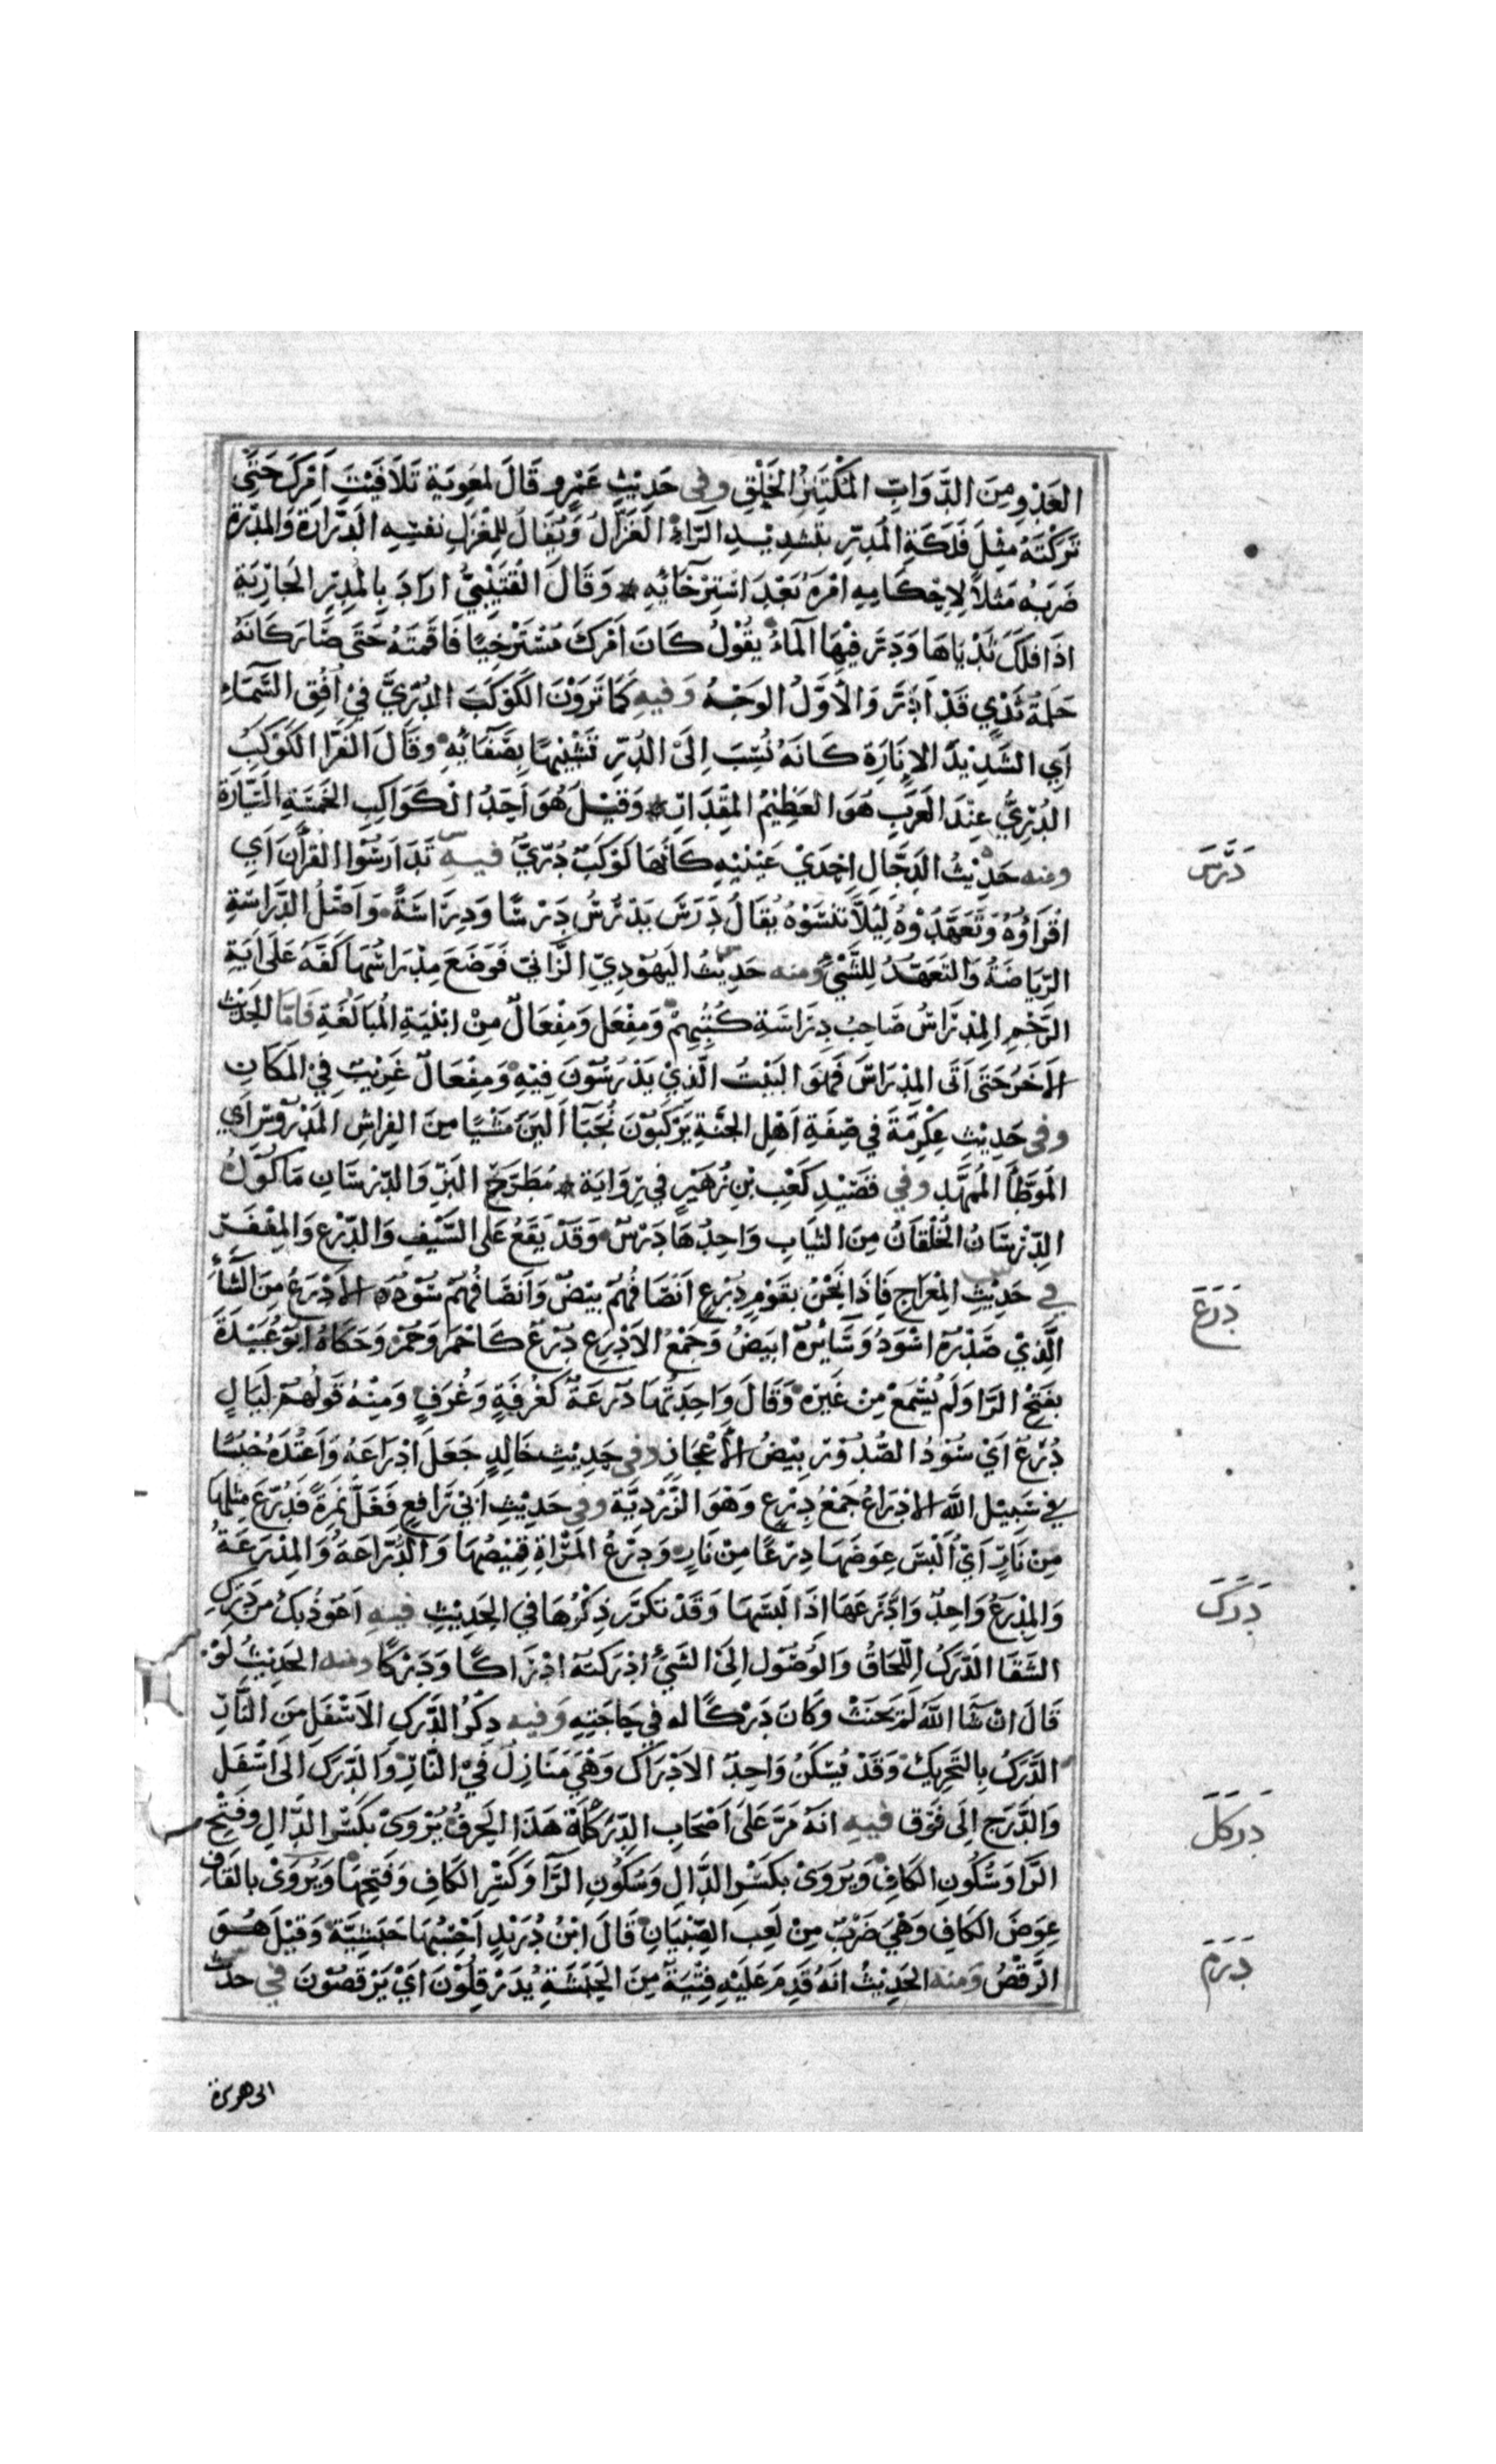 العَدْوِ مِنَ الدَّوَابِّ المُكْتَنِزُ الخَلْقِ وفى حَدِيْثِ عَمْرٍو قَالَ لِمُعٰوِيَة تَلَافَيْتَ اَمْرَكَ حَتّٰى
تَرَكْتَهُ مِثْلَ فَلْكَةِ المُدِرِّ بتشدِيْدِ الرَّاءِ الغَزَّالُ وَيُقَالُ لِلْمِغْزَلِ نفسِهِ الدَّرَّارَةُ وَالمِدَرَّة
ضَرَبَهُ مَثَلاً لِاِحْكَامِهِ اَمْرَهُ بَعْدَ اسْتِرْخَائِهِ * وَقَالَ القُتَيْبِيُّ ارَادَ بِالمُدِرِّ الجَارِيَة
اذَا فَلَّكَ ثَدْيَاهَا وَدَرَّ فِيْهَا المَاءُ يَقُوْلُ كَانَ اَمْرُكَ مُسْتَرْخِيًا فَاَقَمْتَهُ حَتّى صَارَ كَاَنَّهُ
حَلَمَةُ ثَدْيٍ قَدْ اَدَرَّ وَالْاَوَّلُ الوَجْهُ وَفيهِ كَمَا تَرَوْنَ الكَوْكَبَ الدُّرِّيَّ فِيْ اُفُقِ السَّمَاءِ
اَيِ الشَّدِيْدَ الاِنَارَةِ كَاَنَّهُ نُسِبَ اِلَى الدُّرِّ تَشْبِيْهًا بِصَفَائِهِ وقَالَ الفَرَّا الكَوْكَبُ
الدُّرِّيُّ عِنْدَ العَرَبِ هُوَ العَظِيْمُ المِقْدَارِ * وَقِيْلَ هُوَ اَحَدُ الْكَوَاكِبِ الخَمْسَةِ السَّيَّارَة
ومنه حَدِيْثُ الدَّجَّالِ اِحْدَيْ عَيْنَيْهِ كَاَنَّهَا كَوْكَبٌ دُرِّيٌّ فيهِ تَدَارَسُوا القُرْآنَ اَيِ
دَرَسَ
اقْرَاُوْهُ وَتَعَهَّدُوْهُ لِئَلاَّ تَنْسَوْهُ يُقَالُ دَرَسَ يَدْرُسُ دَرْسًا وَدِرَاسَةً وَاَصْلُ الدِّرَاسَةِ
الرِّيَاضَةُ وَالتَّعَهُّدُ لِلشَّيْءِ ومنه حَدِيْثُ اليَهُوْدِيِّ الزَّانِي فَوَضَعَ مِدْرَاسُهَا كَفَّهُ عَلَى اٰيَةِ
الرَّجْمِ المِدْرَاسُ صَاحِبُ دِرَاسَةِ كُتُبِهِمْ وَمِفْعَل وَمِفْعَالٌ مِنْ ابْنِيَةِ المُبَالَغَةِ فَاَمَّا الحَدِيْثُ
الاٰخَرُ حَتّى اَتَى المِدْرَاسَ فَهُوَ البَيْتُ الَّذِيْ يَدْرُسُوْنَ فِيْهِ وَمِفْعَالٌ غَرِيْبٌ فِيْ المَكَانِ
وفى حَدِيْثِ عِكْرِمَةَ في صِفَةِ اَهْلِ الجَنَّةِ يَرْكَبُوْنَ نُجُبًا اَلْيَنَ مَشْيًا مِنَ الفِرَاشِ المَدْرُوْسِ اَيِ
المُوَطَّأِ المُمَهَّدِ وفي قصِيْدِ كَعْبِ بْنِ زُهَيْرٍ في رِوَايَة * مُطَرَّحُ البَزِّ وَالدِّرْسَانِ مَاكُوْلُ
الدِّرْسَانُ الخُلْقَانُ مِنَ الثِيَابِ وَاحِدُهَا دِرْسٌ وَقَدْ يَقَعُ عَلى السَّيْفِ وَالدِّرْعِ وَالمِغْفَرِ
في حَدِيْثِ المِعْرَاجِ فَاِذَا نَحْنُ بِقَوْمٍ دُرْعٍ اَنْصَافُهُمْ بِيْضٌ وَاَنْصَافُهُمْ سُوْدٌ الاَدْرَعُ مِنَ الشَّاْءِ
دَرَعَ
الَّذِيْ صَدْرُهُ اسْوَدُ وَسَائِرُهُ ابْيَضُ وَجَمْعُ الاَدْرَعِ دُرْعٌ كَاَحْمَرَ وَحُمْرٍ وَحَكَاهُ ابُوْعُبَيْدَةَ
بِفَتْحِ الرَّا وَلَمْ يُسْمَعْ مِنْ غَيْرِه وَقَالَ وَاحِدَتُهَا دُرْعَةٌ كَغُرْفَةٍ وَغُرَفٍ وَمِنْهُ قَوْلُهُمْ لَيَالٍ
دُرَعٌ اَيْ سُوْدُ الصُّدُوْرِ بِيْضُ الْاَعْجَازِ وفى حَدِيْثِ خَالِدٍ جَعَلَ اَدْرَاعَهُ وَاَعْتُدَهُ حُبْسًا
في سَبِيْلِ اللّٰه الاَدْرَاعُ جَمْعُ دِرْعٍ وَهْوَ الزَّرَدِيَّة وفى حَدِيْثِ اَبِيْ رَافِعٍ فَغَلَّ نَمِرَةً فَدُرِّعَ مِثْلَهَا
مِنْ نَارٍ اَيْ اُلْبِسَ عِوَضَهَا دِرْعًا مِنْ نَارٍ وَدِرْعُ المَرْاَةِ قَمِيْصُهَا وَالدُّرَّاعَةُ وَالمِدْرَعَةُ
وَالمِدْرَعُ وَاحِدٌ وَادَّرَعَهَا اذَا لَبِسَهَا وَقَدْ تكَرَّر ذِكْرُهَا في الحَدِيْثِ فيهِ اَعُوْذُ بِكَ مِنْ دَرَكِ
دَرَكَ
الشَّقَا الدَّرَكُ اللَّحَاقُ وَالوُصُوْل اِلَى الشَّيْءِ ادْرَكْتُهُ ادْرَاكًا وَدَرَكًا ومنه الحَدِيْثُ لَوْ
قَالَ انْ شَا اللّٰهُ لَمْ يَحْنَثْ وكَانَ دَرَكًا له في حَاجَتِهِ وَفيهِ ذِكْرُ الدَّرَكِ الاَسْفَلِ مِنَ النَّارِ
الدَّرَكُ بِالتَّحْرِيْكِ وَقَدْ يُسَكَّنُ وَاحِدُ الاَدْرَاكِ وَهْيَ مَنَازِلُ فِيْ النَّارِ وَالدَّرَكُ الَى اَسْفَلِ
وَالدَّرَجُ اِلَى فَوْق فيهِ انَّهُ مَرَّ عَلى اَصْحَابِ الدِّرَكْلَةِ هَذَا الحَرْفُ يُرْوَىْ بكَسْرِ الدَّالِ وفَتْحِ
دركل
الرَّا وَسُكُوْنِ الكَافِ وَيُرْوَىْ بكَسْرِ الدَّالِ وَسُكُوْنِ الرَّا وَكَسْرِ الكَافِ وَفَتْحِهَا وَيُرْوَىْ بالقَافِ
عِوَضَ الكَافِ وَهْيَ ضَرْبٌ مِنْ لَعِبِ الصِّبْيَانِ قَالَ ابْنُ دُرَيْدٍ اَحْسِبُهَا حَبَشِيَّةً وَقِيْلَ هُوَ
الرَّقْصُ وَمنه الحَدِيْثُ انَّهُ قَدِمَ عَلَيْهِ فِتْيَةٌ مِنَ الحَبَشَةِ يُدَرْقِلُوْنَ اَيْ يَرْقُصُوْنَ في حديث
دَرَمَ
ابى هريرة